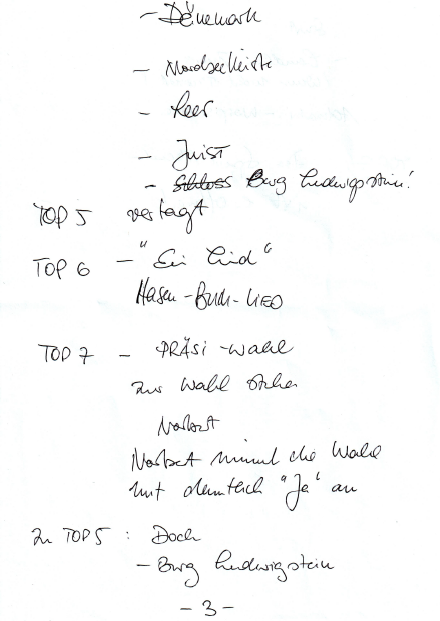 - Dänemark
- Nordseeküste
- Leer
- Juist
- Schloss Burg Ludwigstein!
TOP 5 vertagt
TOP 6 - "Ein Lied"
Hasen-Buch-LIED
TOP 7 - PRÄSI-Wahl
zur Wahl stehen
Norbert
Norbert nimmt die Wahl
mit deutlich "Ja" an
Zu TOP 5 : Doch
- Burg Ludwigstein
- 3 -